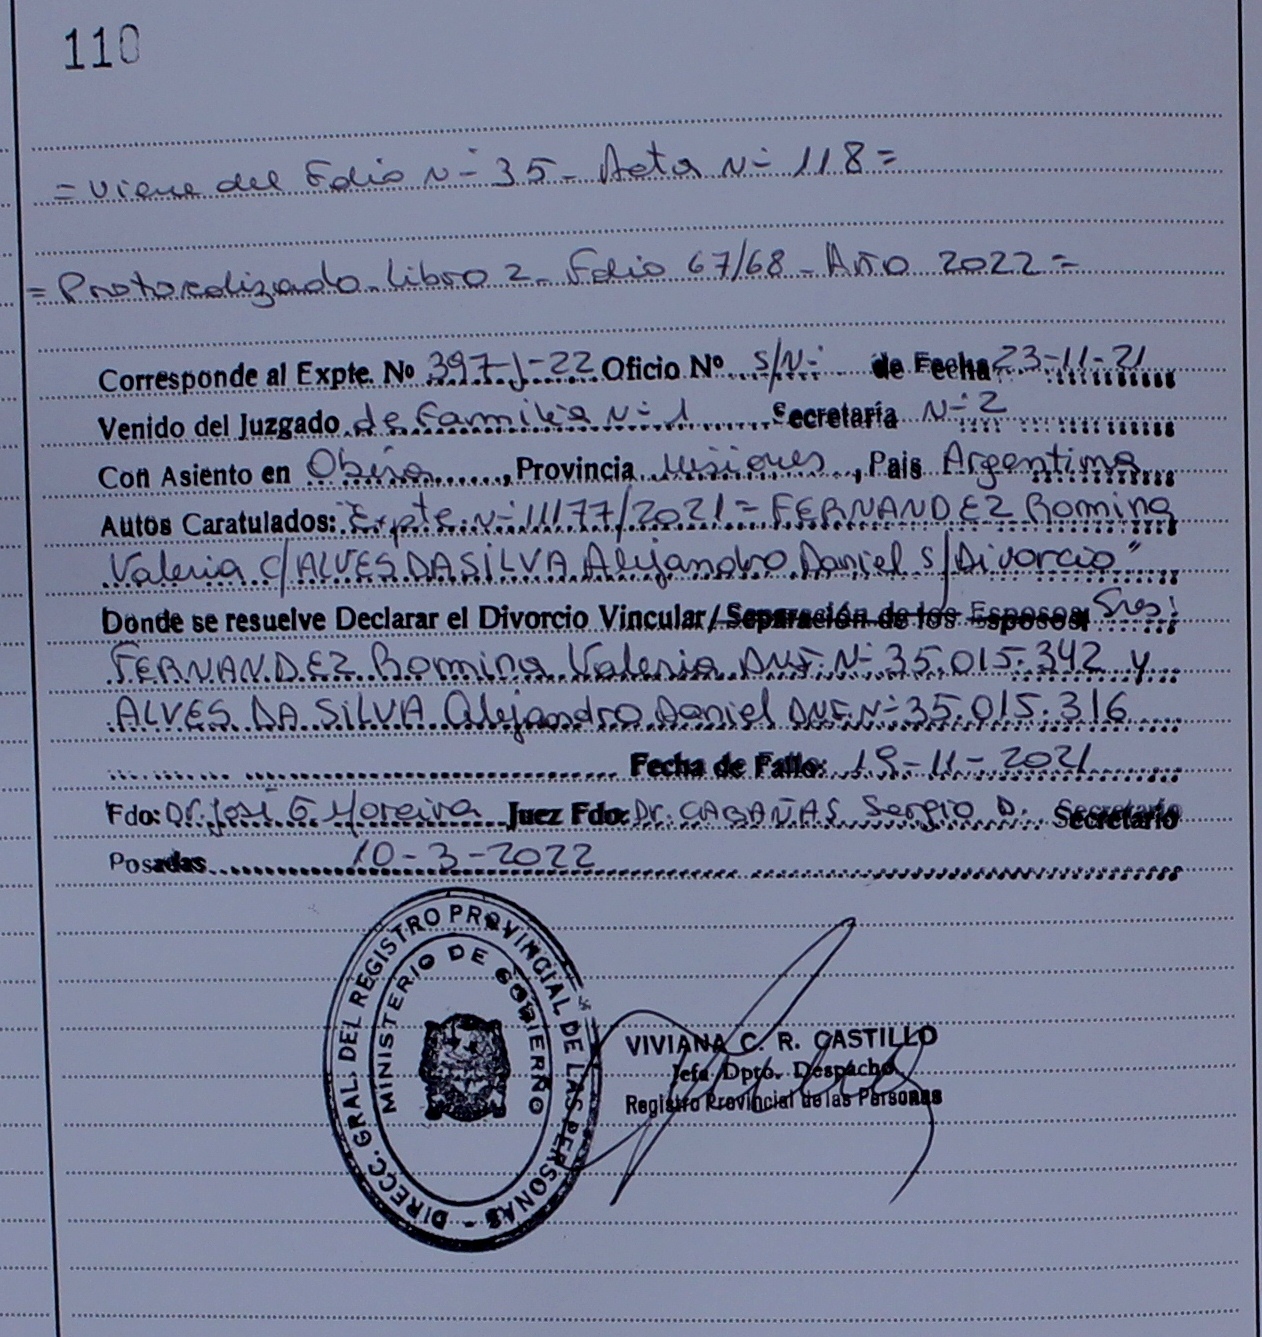 110
= Viene del Folio N- 35 - Acta N- 118 =
= Protocolizado - Libro 2 - Folio 67/68 - Año 2022 =
Corresponde al Expte. Nº 397-J-22 Oficio Nº S/N- de Fecha 23-11-21
Venido del Juzgado de Familia N- 1 Secretaría N- 2
Con Asiento en Oberá, Provincia Misiones, Pais Argentina
Autos Caratulados: "Expte. N- 11177/2021 = FERNANDEZ Romina
Valeria c/ ALVES DA SILVA Alejandro Daniel s/ Divorcio"
Donde se resuelve Declarar el Divorcio Vincular/ Separación de los Esposos Sres:
FERNANDEZ Romina Valeria DNI. N- 35.015.342 y
ALVES DA SILVA Alejandro Daniel DNI. N- 35.015.316
Fecha de Fallo: 19-11-2021
Fdo: Dr. José G Moreira Juez Fdo: Dr. CABAÑAS Sergio D. Secretario
Posadas 10-3-2022
DIRECC. GRAL. DEL REGISTRO PROVINCIAL DE LAS PERSONAS -
MINISTERIO DE GOBIERNO
VIVIANA C. R. CASTILLO
Jefa Dpto. Despacho
Registro Provincial de las Personas